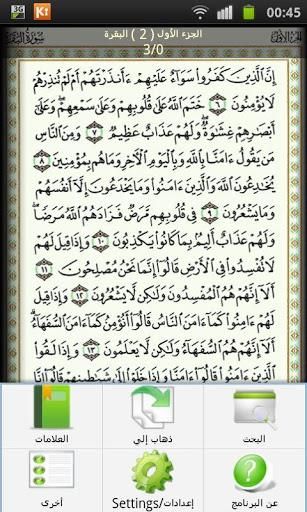 3G K 00:45
الجزء الأول ( 2 ) البقرة
3/0
سورة البقرة
الجزء الأول
إِنَّ ٱلَّذِينَ كَفَرُوا۟ سَوَآءٌ عَلَيْهِمْ ءَأَنذَرْتَهُمْ أَمْ لَمْ تُنذِرْهُمْ
لَا يُؤْمِنُونَ ٦ خَتَمَ ٱللَّهُ عَلَىٰ قُلُوبِهِمْ وَعَلَىٰ سَمْعِهِمْ ۖ وَعَلَىٰٓ
أَبْصَـٰرِهِمْ غِشَـٰوَةٌ ۖ وَلَهُمْ عَذَابٌ عَظِيمٌ ٧ وَمِنَ ٱلنَّاسِ
مَن يَقُولُ ءَامَنَّا بِٱللَّهِ وَبِٱلْيَوْمِ ٱلْـَٔاخِرِ وَمَا هُم بِمُؤْمِنِينَ ٨
يُخَـٰدِعُونَ ٱللَّهَ وَٱلَّذِينَ ءَامَنُوا۟ وَمَا يَخْدَعُونَ إِلَّآ أَنفُسَهُمْ
وَمَا يَشْعُرُونَ ٩ فِى قُلُوبِهِم مَّرَضٌ فَزَادَهُمُ ٱللَّهُ مَرَضًا ۖ
وَلَهُمْ عَذَابٌ أَلِيمٌۢ بِمَا كَانُوا۟ يَكْذِبُونَ ١٠ وَإِذَا قِيلَ لَهُمْ
لَا تُفْسِدُوا۟ فِى ٱلْأَرْضِ قَالُوٓا۟ إِنَّمَا نَحْنُ مُصْلِحُونَ ١١
أَلَآ إِنَّهُمْ هُمُ ٱلْمُفْسِدُونَ وَلَـٰكِن لَّا يَشْعُرُونَ ١٢ وَإِذَا قِيلَ
لَهُمْ ءَامِنُوا۟ كَمَآ ءَامَنَ ٱلنَّاسُ قَالُوٓا۟ أَنُؤْمِنُ كَمَآ ءَامَنَ ٱلسُّفَهَآءُ ۗ
أَلَآ إِنَّهُمْ هُمُ ٱلسُّفَهَآءُ وَلَـٰكِن لَّا يَعْلَمُونَ ١٣ وَإِذَا لَقُوا۟
ٱلَّذِينَ ءَامَنُوا۟ قَالُوٓا۟ ءَامَنَّا وَإِذَا خَلَوْا۟ إِلَىٰ شَيَـٰطِينِهِمْ قَالُوٓا۟
البحث ذهاب إلي العلامات
عن البرنامج Settings/إعدادات أخرى